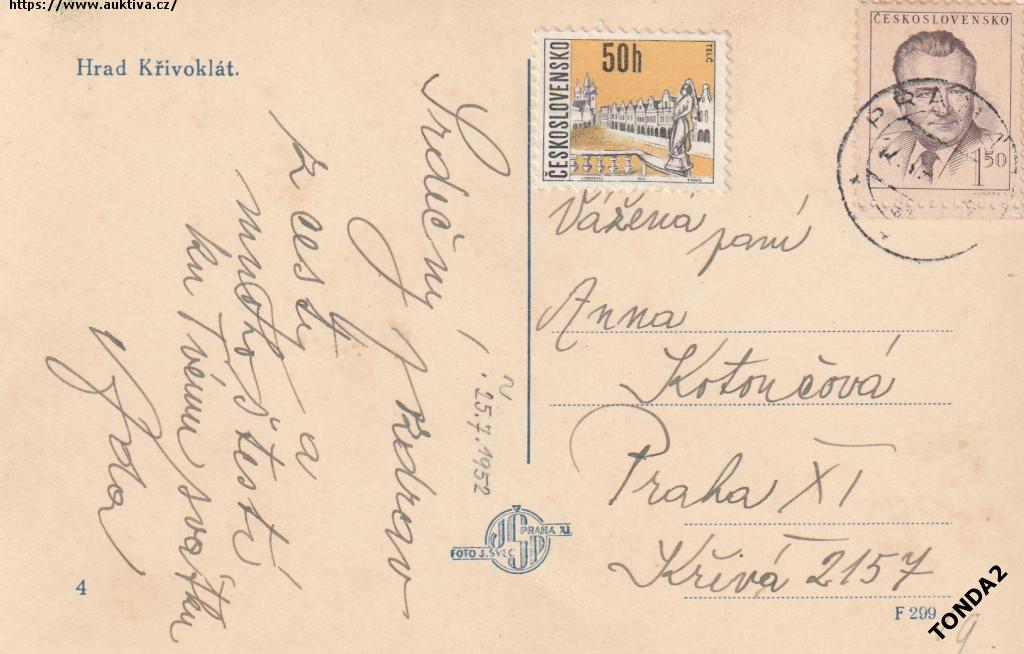 https://www.auktiva.cz/
Hrad Křivoklát.
Srdečný pozdrav
z cesty a
mnoho štěstí
ku Tvému svátku
25.7.1952
ČESKOSLOVENSKO
50h
TELČ
ČESKOSLOVENSKO
1 50
PRAHA
Vážená paní
Anna
Kotončová
Praha XI
Křivá 2157
PRAHA XI.
FOTO J. ŠVEC
4
F 299
TONDA2
9